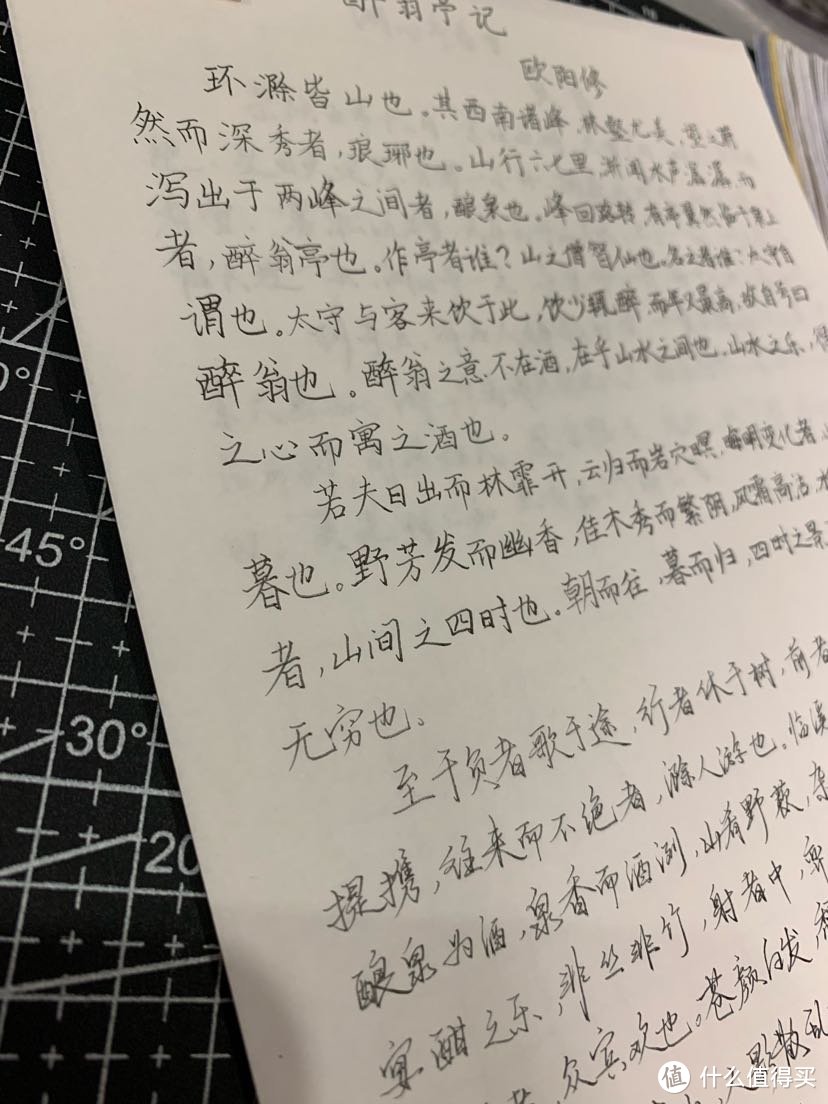 醉翁亭记
欧阳修
环滁皆山也。其西南诸峰，林壑尤美，望之蔚
然而深秀者，琅琊也。山行六七里，渐闻水声潺潺，而
泻出于两峰之间者，酿泉也。峰回路转，有亭翼然临于泉上
者，醉翁亭也。作亭者谁？山之僧智仙也。名之者谁？太守自
谓也。太守与客来饮于此，饮少辄醉，而年又最高，故自号曰
醉翁也。醉翁之意不在酒，在乎山水之间也。山水之乐，得
之心而寓之酒也。
若夫日出而林霏开，云归而岩穴暝，晦明变化者，山
暮也。野芳发而幽香，佳木秀而繁阴，风霜高洁，水
者，山间之四时也。朝而往，暮而归，四时之景
无穷也。
至于负者歌于途，行者休于树，前者
提携，往来而不绝者，滁人游也。临溪
酿泉为酒，泉香而酒洌，山肴野蔌，杂
宴酣之乐，非丝非竹，射者中，弈
者，众宾欢也。苍颜白发，颓
影散乱
45°
30°
20
0°
值 什么值得买